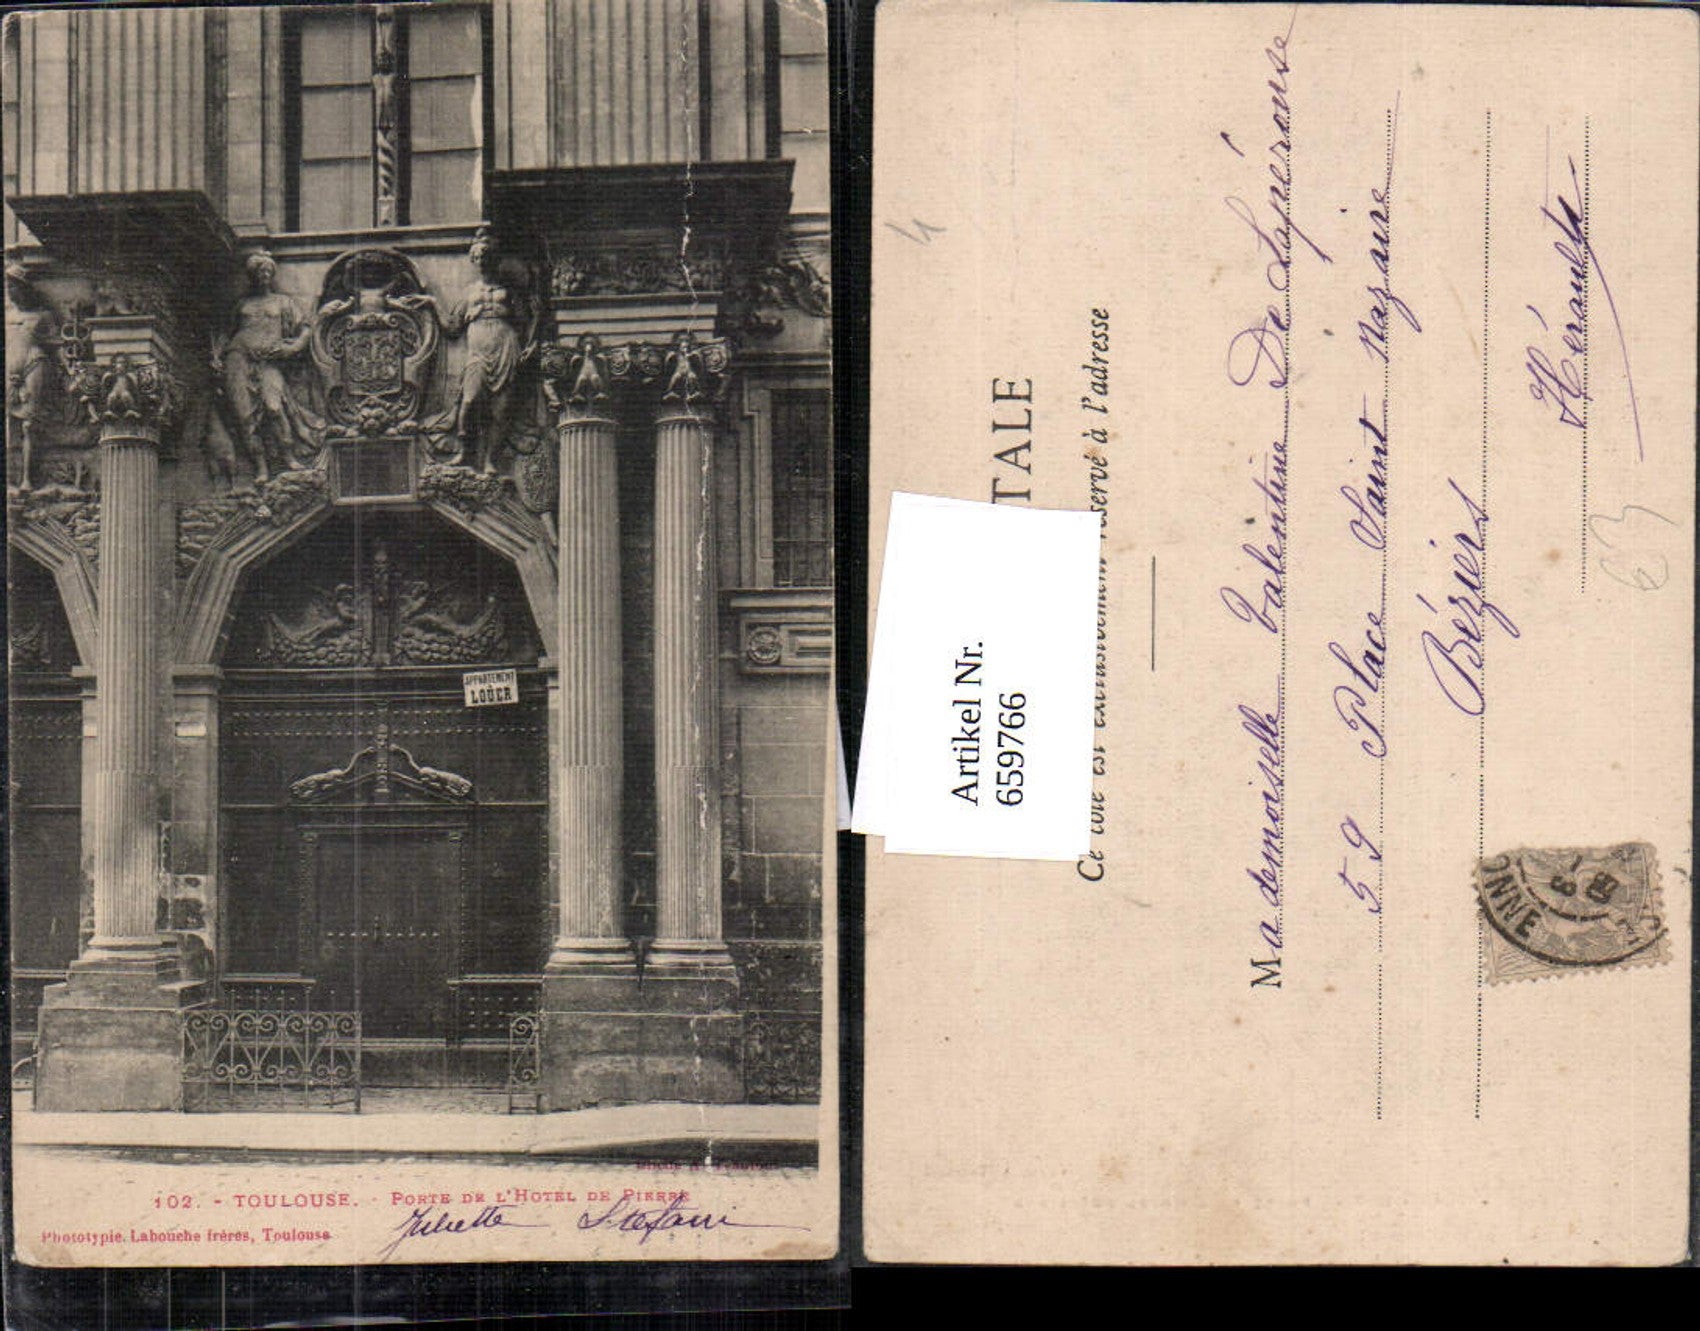 APPARTEMENT
LOUER
102. - TOULOUSE. - PORTE DE L'HOTEL DE PIERRE
Phototypie. Labouche frères, Toulouse
Juliette Stefani
4
TALE
Ce côté est exclusivement réservé à l'adresse
Artikel Nr.
659766
Mademoiselle Valentine De Lapérouse
59 Place Saint Nazaire
Béziers
Hérault
ONNE